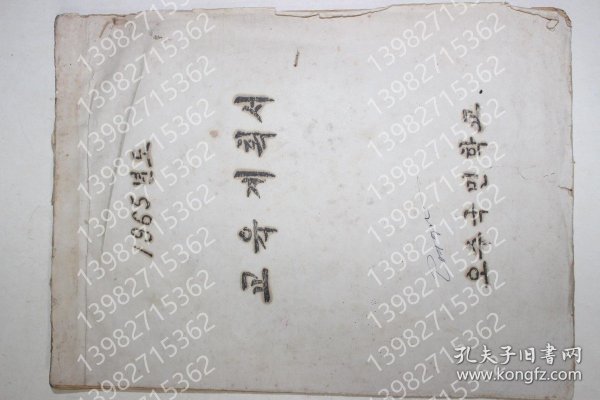 1965년도
교육계획서
오수국민학교
13982715362
孔夫子旧书网
www.kongfz.com